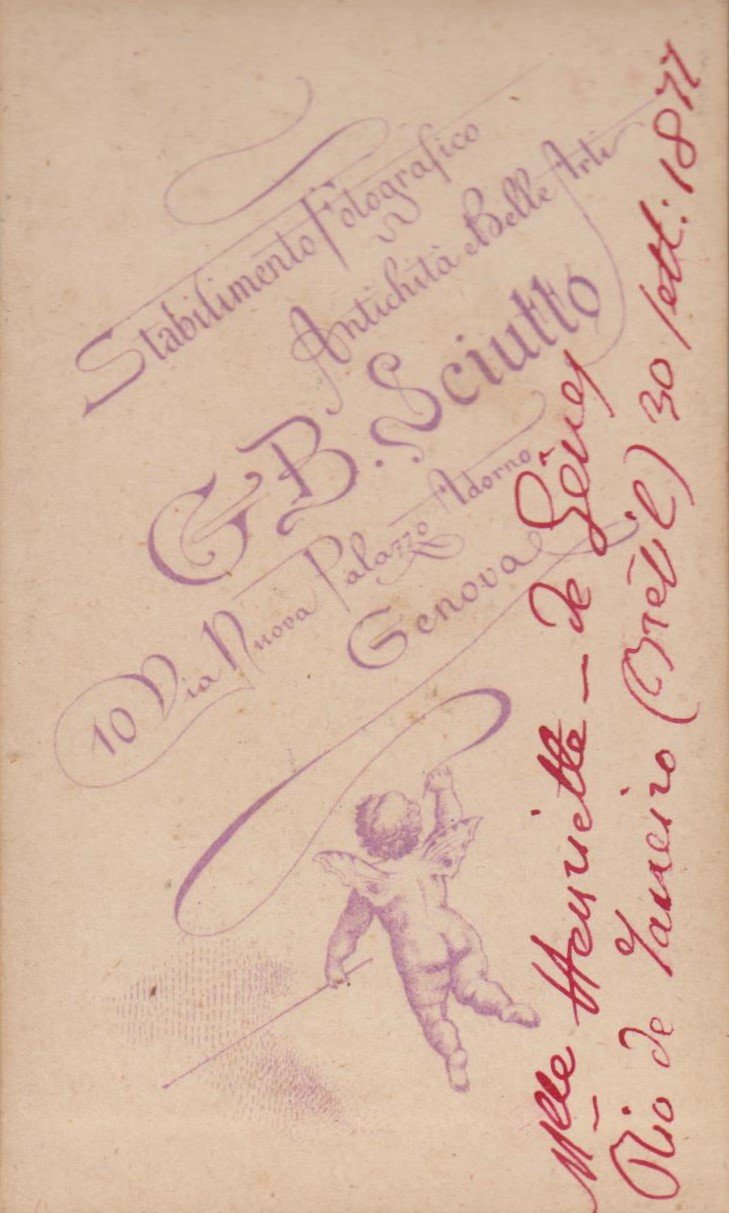 Stabilimento Fotografico
Antichità e Belle Arti
G. B. Sciutto
10 Via Nuova Palazzo Adorno
Genova
Mlle Henriette – de Gênes
Rio de Janeiro (Brésil) 30 sett: 1877